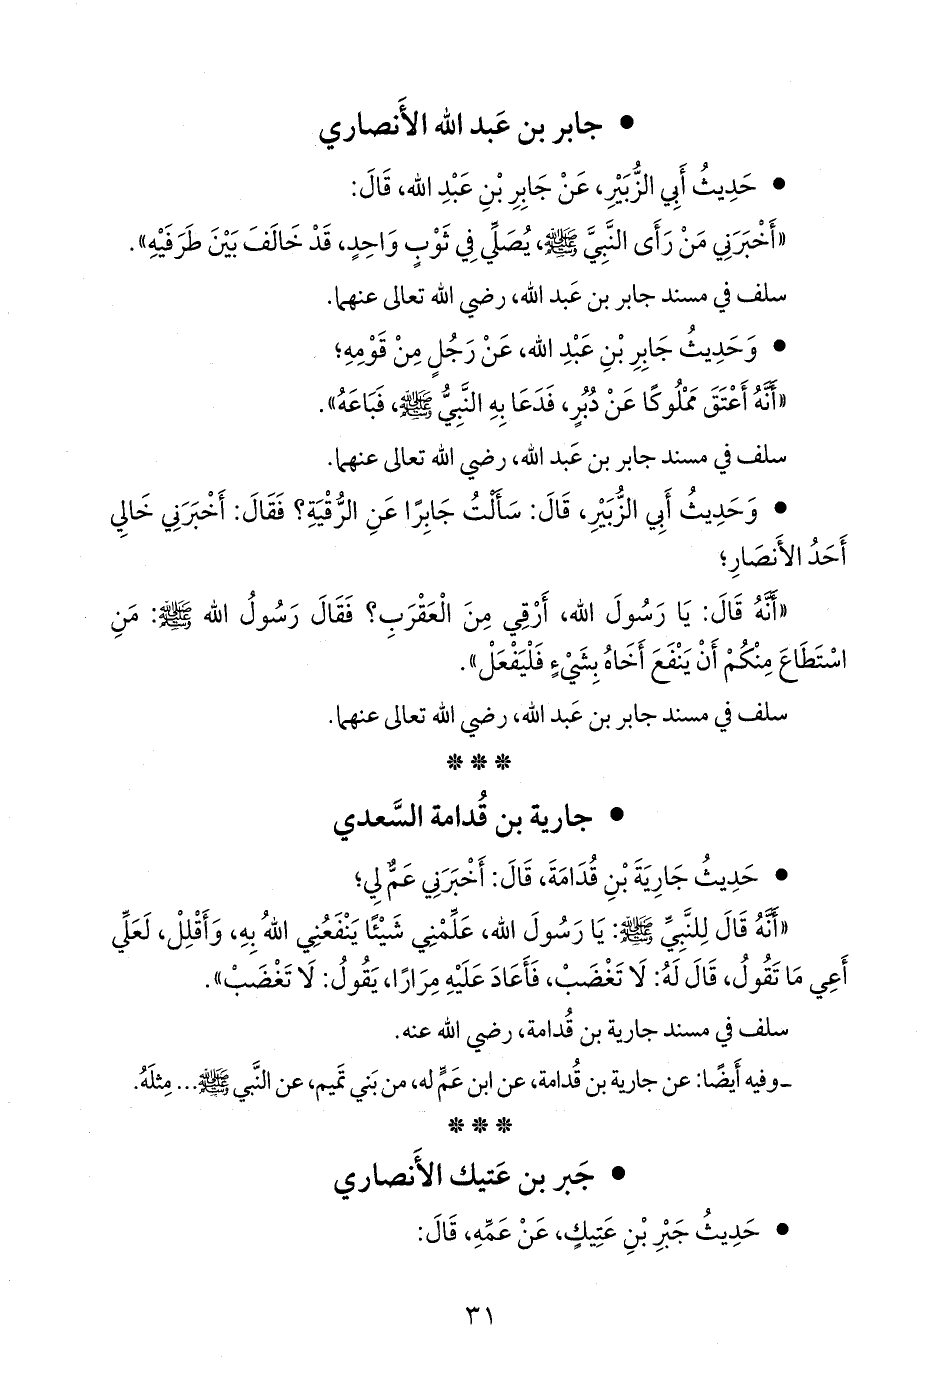 • جابر بن عَبد الله الأَنصاري
• حَدِيثُ أَبِي الزُّبَيْرِ، عَنْ جَابِرِ بْنِ عَبْدِ الله، قَالَ:
«أَخْبَرَنِي مَنْ رَأَى النَّبِيَّ ﷺ، يُصَلِّي فِي ثَوْبٍ وَاحِدٍ، قَدْ خَالَفَ بَيْنَ طَرَفَيْهِ».
سلف في مسند جابر بن عَبد الله، رضي الله تعالى عنهما.
• وَحَدِيثُ جَابِرِ بْنِ عَبْدِ الله، عَنْ رَجُلٍ مِنْ قَوْمِهِ؛
«أَنَّهُ أَعْتَقَ مَمْلُوكًا عَنْ دُبُرٍ، فَدَعَا بِهِ النَّبِيُّ ﷺ، فَبَاعَهُ».
سلف في مسند جابر بن عَبد الله، رضي الله تعالى عنهما.
• وَحَدِيثُ أَبِي الزُّبَيْرِ، قَالَ: سَأَلْتُ جَابِرًا عَنِ الرُّقْيَةِ؟ فَقَالَ: أَخْبَرَنِي خَالِي
أَحَدُ الأَنصَارِ؛
«أَنَّهُ قَالَ: يَا رَسُولَ الله، أَرْقِي مِنَ الْعَقْرَبِ؟ فَقَالَ رَسُولُ الله ﷺ: مَنِ
اسْتَطَاعَ مِنْكُمْ أَنْ يَنْفَعَ أَخَاهُ بِشَيْءٍ فَلْيَفْعَلْ».
سلف في مسند جابر بن عَبد الله، رضي الله تعالى عنهما.
* * *
• جارية بن قُدامة السَّعدي
• حَدِيثُ جَارِيَةَ بْنِ قُدَامَةَ، قَالَ: أَخْبَرَنِي عَمٌّ لِي؛
«أَنَّهُ قَالَ لِلنَّبِيِّ ﷺ: يَا رَسُولَ الله، عَلِّمْنِي شَيْئًا يَنْفَعُنِي اللهُ بِهِ، وَأَقْلِلْ، لَعَلِّي
أَعِي مَا تَقُولُ، قَالَ لَهُ: لَا تَغْضَبْ، فَأَعَادَ عَلَيْهِ مِرَارًا، يَقُولُ: لَا تَغْضَبْ».
سلف في مسند جارية بن قُدامة، رضي الله عنه.
ـ وفيه أَيضًا: عن جارية بن قُدامة، عن ابن عَمٍّ له، من بَني تَميم، عن النَّبي ﷺ... مِثلَهُ.
* * *
• جَبر بن عَتيك الأَنصاري
• حَدِيثُ جَبْرِ بْنِ عَتِيكٍ، عَنْ عَمِّهِ، قَالَ:
٣١